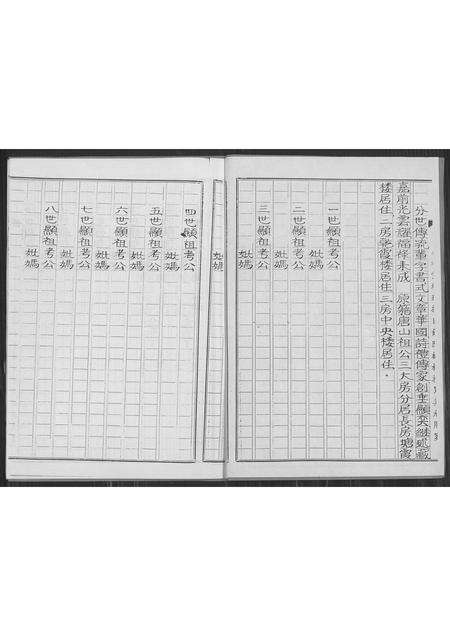 分世傳流輩字書式文章華國詩禮傳家創垂顯奕繼述藏
嘉前光雲耀福祿未成 原籍唐山祖公三大房分居長房塘霞
樓居住二房肇霞樓居住三房中央樓居住.
一世顯祖考公
妣媽
二世顯祖考公
妣媽
三世顯祖考公
妣媽
妣媽
四世顯祖考公
妣媽
五世顯祖考公
妣媽
六世顯祖考公
妣媽
七世顯祖考公
妣媽
八世顯祖考公
妣媽